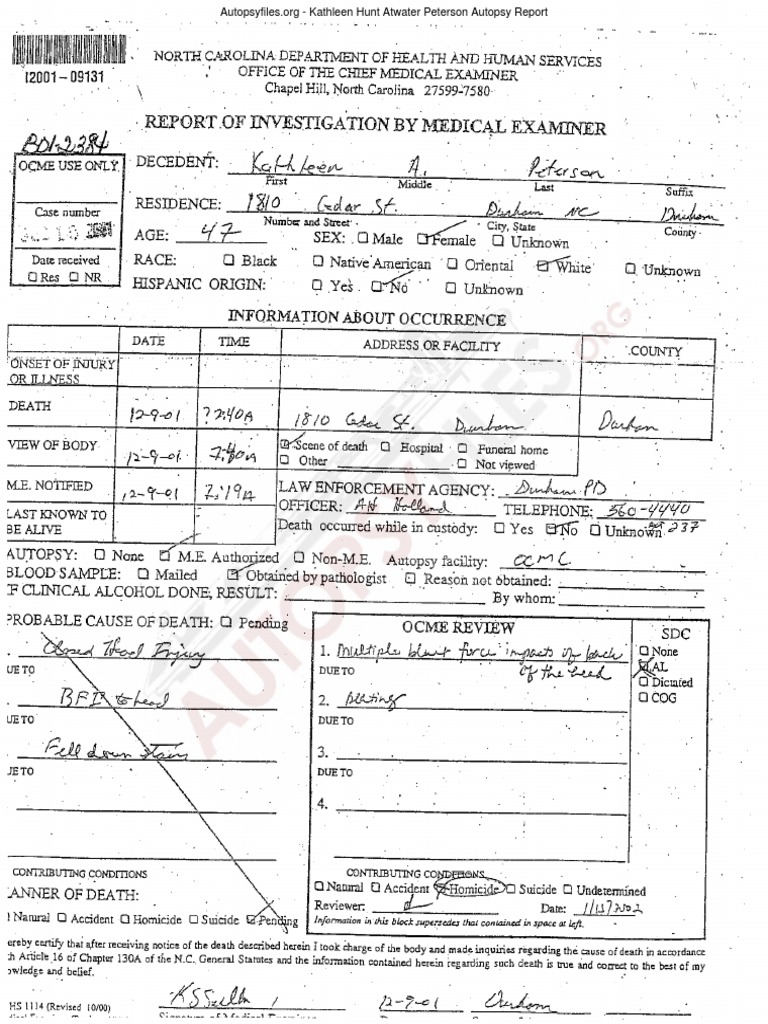 Autopsyfiles.org - Kathleen Hunt Atwater Peterson Autopsy Report
I2001-09131
NORTH CAROLINA DEPARTMENT OF HEALTH AND HUMAN SERVICES
OFFICE OF THE CHIEF MEDICAL EXAMINER
Chapel Hill, North Carolina 27599-7580
REPORT OF INVESTIGATION BY MEDICAL EXAMINER
B01-2384
OCME USE ONLY
Case number
Date received
☐ Res ☐ NR
DECEDENT: Kathleen A. Peterson
First Middle Last Suffix
RESIDENCE: 1810 Cedar St. Durham NC Durham
Number and Street City, State County
AGE: 47 SEX: ☐ Male ☑ Female ☐ Unknown
RACE: ☐ Black ☐ Native American ☐ Oriental ☑ White ☐ Unknown
HISPANIC ORIGIN: ☐ Yes ☑ No ☐ Unknown
INFORMATION ABOUT OCCURRENCE
DATE TIME ADDRESS OR FACILITY COUNTY
ONSET OF INJURY
OR ILLNESS
DEATH 12-9-01 ?2:40A 1810 Cedar St. Durham Durham
VIEW OF BODY 12-9-01 ☑ Scene of death ☐ Hospital ☐ Funeral home
☐ Other ☐ Not viewed
M.E. NOTIFIED 12-9-01 7:19A LAW ENFORCEMENT AGENCY: Durham PD
OFFICER: AH Holland TELEPHONE: 560-4440
LAST KNOWN TO
BE ALIVE
Death occurred while in custody: ☐ Yes ☑ No ☐ Unknown 237
AUTOPSY: ☐ None ☑ M.E. Authorized ☐ Non-M.E. Autopsy facility: OCME
BLOOD SAMPLE: ☐ Mailed ☑ Obtained by pathologist ☐ Reason not obtained:
F CLINICAL ALCOHOL DONE, RESULT: By whom:
PROBABLE CAUSE OF DEATH: ☐ Pending
Closed Head Injury
UE TO
BFI to head
UE TO
Fell down stairs
UE TO
CONTRIBUTING CONDITIONS
ANNER OF DEATH:
Natural ☐ Accident ☐ Homicide ☐ Suicide ☑ Pending
OCME REVIEW
1. Multiple blunt force impacts of back
of the head
DUE TO
2. Beating
DUE TO
3.
DUE TO
4.
CONTRIBUTING CONDITIONS
☐ Natural ☐ Accident ☑ Homicide ☐ Suicide ☐ Undetermined
Reviewer: Date:
Information in this block supersedes that contained in space at left.
SDC
☐ None
☒ AL
☐ Dictated
☐ COG
ereby certify that after receiving notice of the death described herein I took charge of the body and made inquiries regarding the cause of death in accordance
h Article 16 of Chapter 130A of the N.C. General Statutes and the information contained herein regarding such death is true and correct to the best of my
owledge and belief.
12-9-01 Durham
HS 1114 (Revised 10/00)
AUTOPSYFILES.ORG